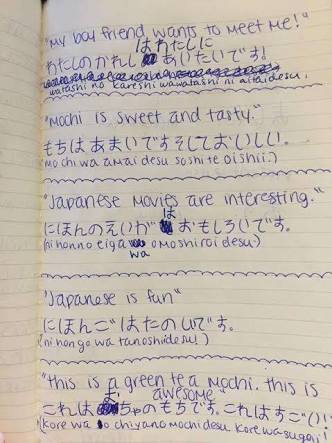 "My boy friend wants to meet me!"
はわたしに
わたしのかれし あいたいです!
watashi no kareshi wa watashi ni aitai desu.
"Mochi is sweet and tasty."
もちはあまいですそしておいしい。
(mochi wa amai desu soshite oishii.)
"Japanese Movies are interesting."
は
にほんのえいが おもしろいです。
(nihonno eiga omoshiroi desu.)
wa
"Japanese is fun"
にほんごはたのしいです。
(nihongo wa tanoshidesu.)
"this is a green tea mochi. this is
awesome
これは ちゃのもちです。これはすごいい
(kore wa chiyano mochi desu. kore wa sugoi